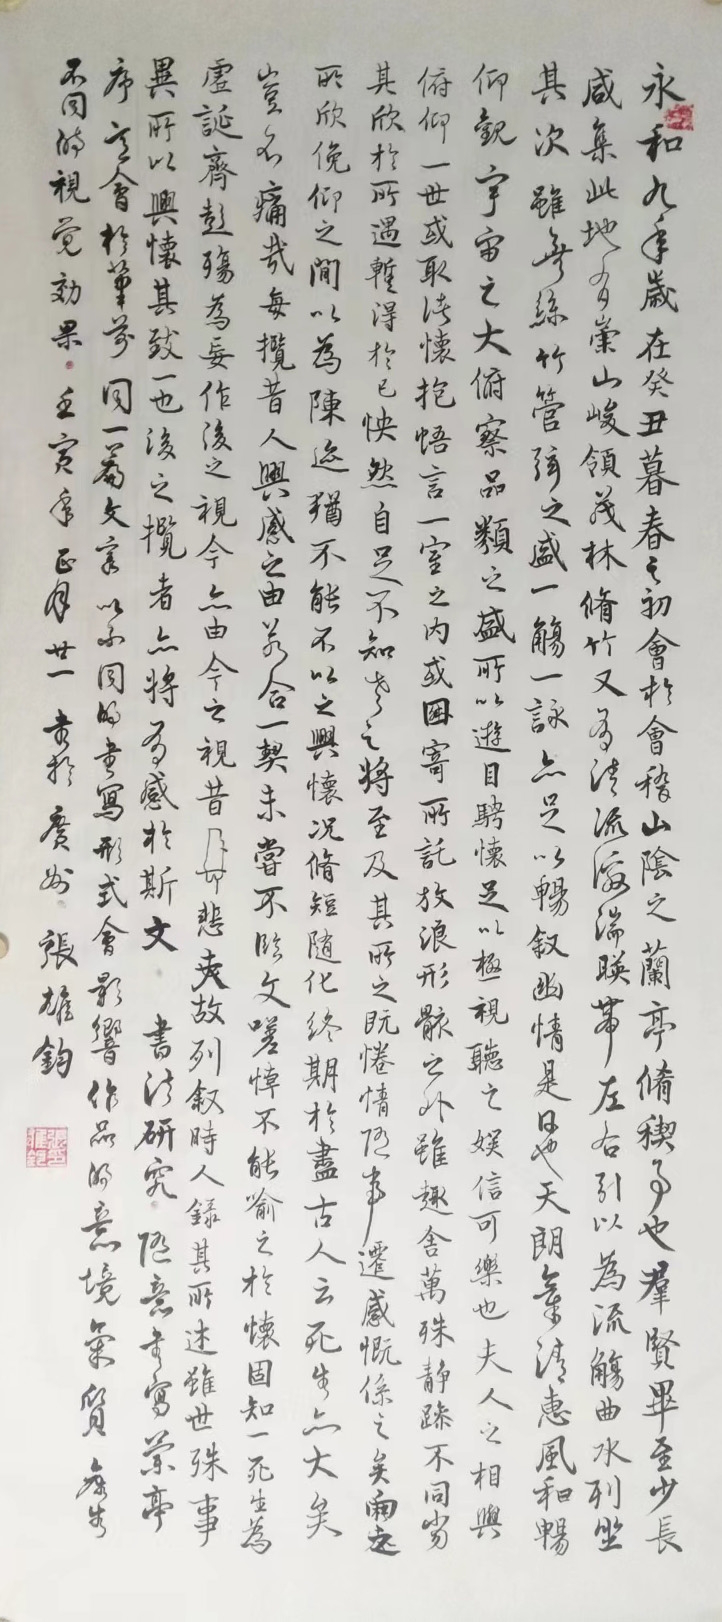 永和九年歲在癸丑暮春之初會於會稽山陰之蘭亭脩稧事也羣賢畢至少長
咸集此地有崇山峻領茂林脩竹又有清流激湍暎帶左右引以為流觴曲水列坐
其次雖無絲竹管弦之盛一觴一詠亦足以暢叙幽情是日也天朗氣清惠風和暢
仰觀宇宙之大俯察品類之盛所以遊目騁懷足以極視聽之娛信可樂也夫人之相與
俯仰一世或取諸懷抱悟言一室之內或因寄所託放浪形骸之外雖趣舍萬殊靜躁不同當
其欣於所遇暫得於己怏然自足不知老之將至及其所之既惓情隨事遷感慨係之矣向之
所欣俛仰之閒以為陳迹猶不能不以之興懷況脩短隨化終期於盡古人云死生亦大矣
豈不痛哉每攬昔人興感之由若合一契未嘗不臨文嗟悼不能喻之於懷固知一死生為
虛誕齊彭殤為妄作後之視今亦由今之視昔 悲夫故列叙時人錄其所述雖世殊事
異所以興懷其致一也後之攬者亦將有感於斯文 書法研究 隨意書寫蘭亭
序 意會於筆前 同一篇文章以不同的書寫形式會影響作品的意境氣質 產生
不同的視覺効果 壬寅年正月廿一 書於廣州 張雄鈞